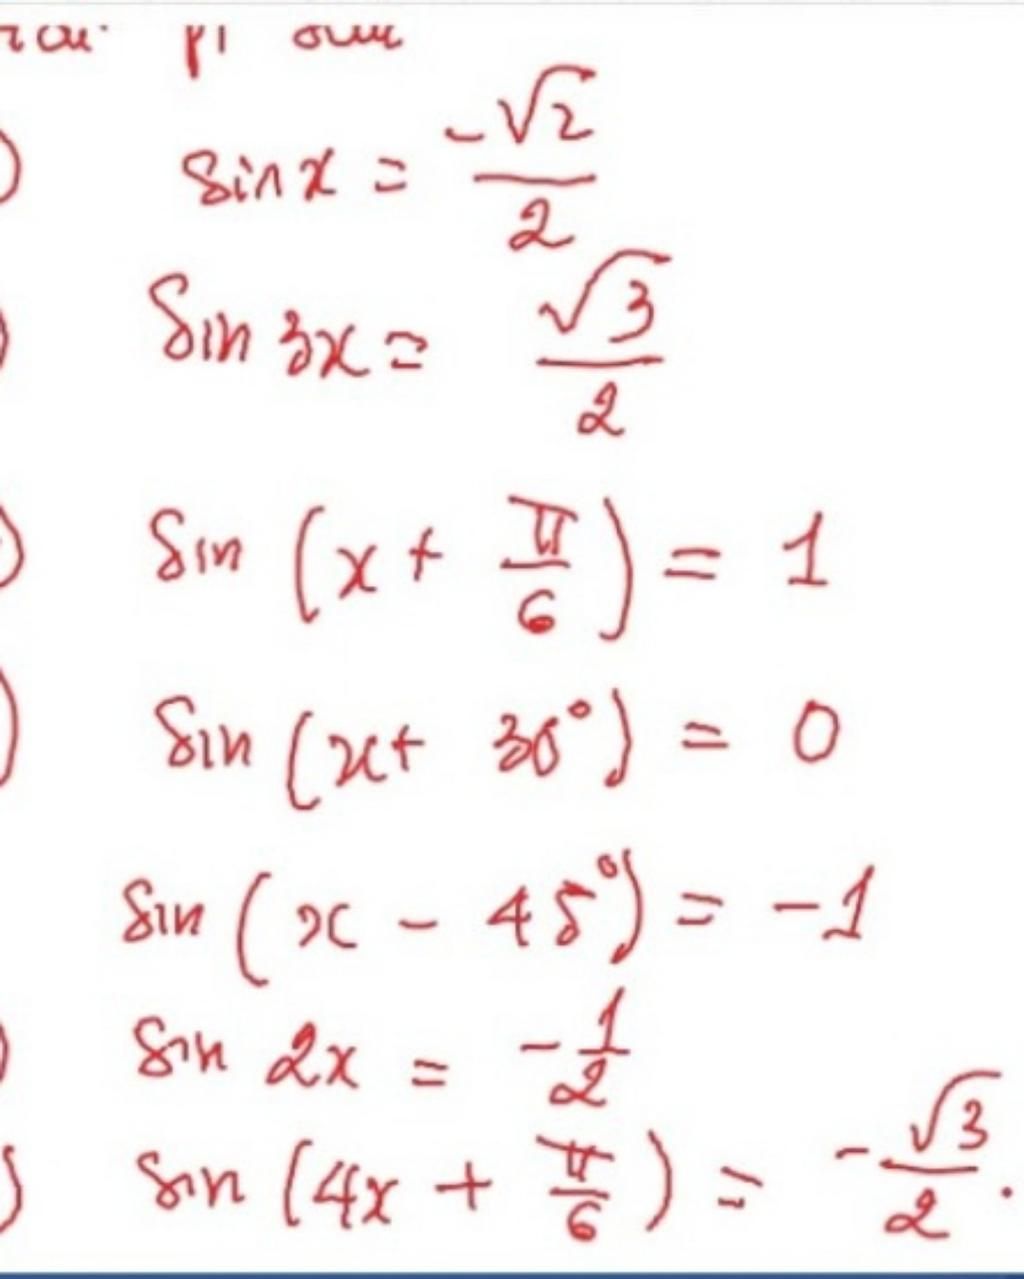 sin x = -√2/2
Sin 3x = √3/2
Sin (x + π/6) = 1
Sin (x + 30°) = 0
Sin (x - 45°) = -1
Sin 2x = -1/2
Sin (4x + π/6) = -√3/2.